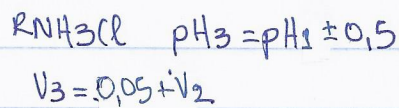 RNH3Cl pH3 = pH1 ± 0,5
V3 = 0,05 + V2